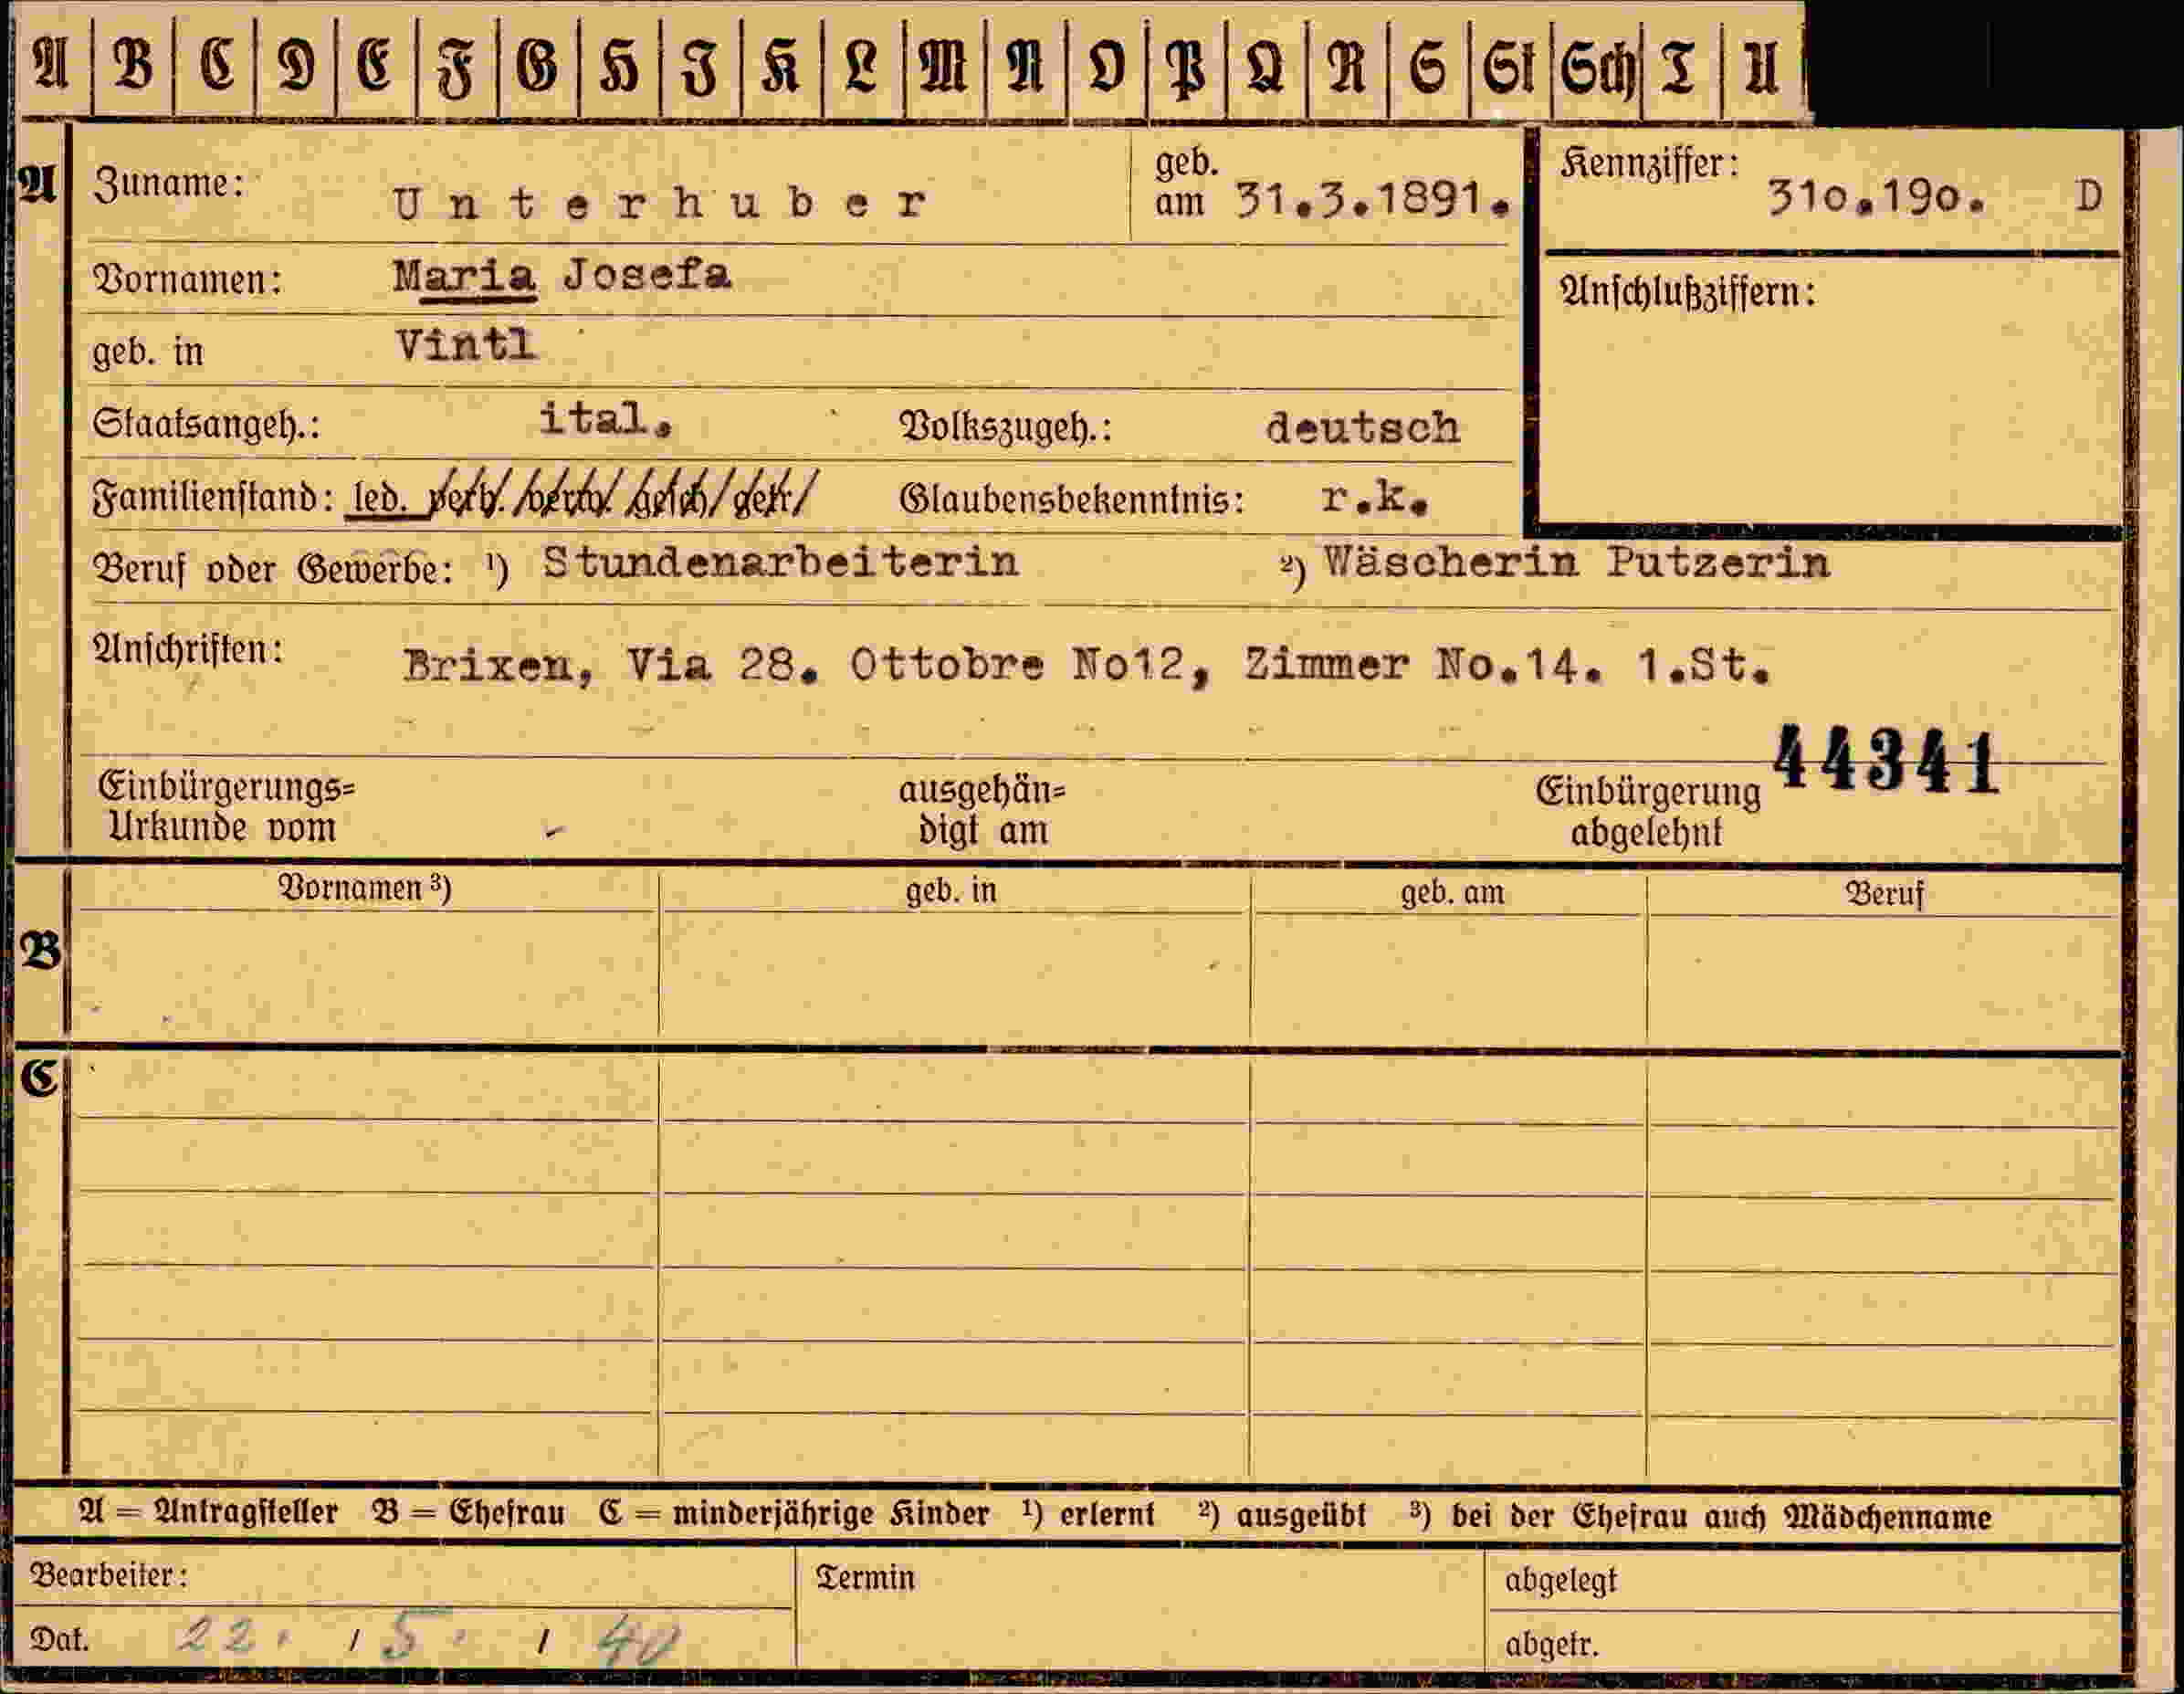 A B C D E F G H I K L M N O P Q R S St Sch T U
A
Zuname: Unterhuber geb. am 31.3.1891. Kennziffer: 310.190. D
Vornamen: Maria Josefa Anschlußziffern:
geb. in Vintl
Staatsangeh.: ital. Volkszugeh.: deutsch
Familienstand: led. verh. verw. gesch. getr. Glaubensbekenntnis: r.k.
Beruf oder Gewerbe: ¹) Stundenarbeiterin ²) Wäscherin Putzerin
Anschriften: Brixen, Via 28. Ottobre No12, Zimmer No.14. 1.St.
44341
Einbürgerungs= ausgehän= Einbürgerung
Urkunde vom digt am abgelehnt
Vornamen ³) geb. in geb. am Beruf
B
C
A = Antragsteller B = Ehefrau C = minderjährige Kinder ¹) erlernt ²) ausgeübt ³) bei der Ehefrau auch Mädchenname
Bearbeiter: Termin abgelegt
Dat. 22. / 5. / 40 abgetr.